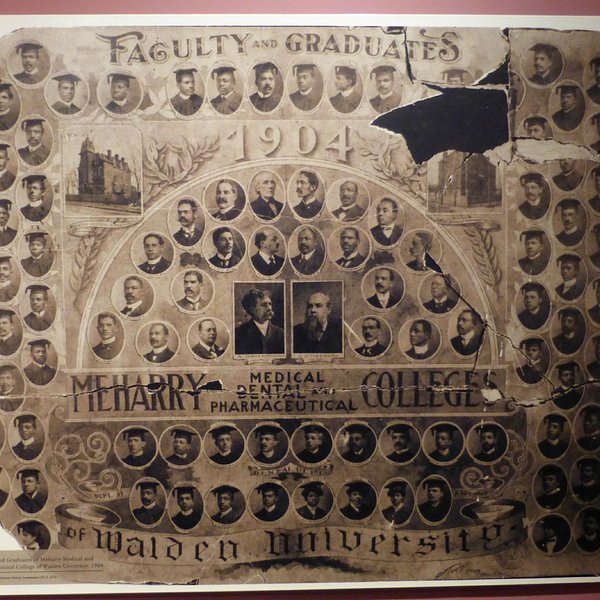 FACULTY AND GRADUATES
1904
MEHARRY MEDICAL DENTAL AND PHARMACEUTICAL COLLEGES
DEPT.
of Walden University.
Graduates of Meharry Medical and
College of Walden University, 1904